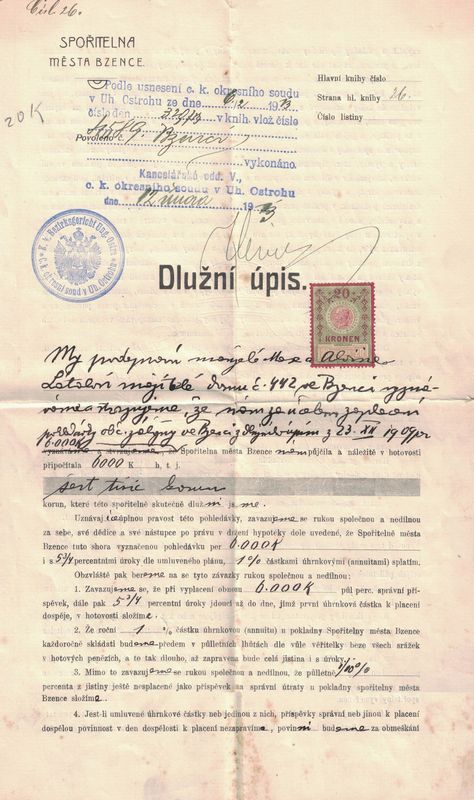 Čísl. 26.
SPOŘITELNA
MĚSTA BZENCE.
Hlavní knihy číslo
Strana hl. knihy 26.
Číslo listiny
20 K
Podle usnesení c. k. okresního soudu
v Uh Ostrohu ze dne 6/2 1913
číslo den. 229/13 v knih. vlož. číslo
Povoleno
Bzenci
vykonáno.
Kancelářské odd. V.,
c. k. okresního soudu v Uh. Ostrohu
dne 12 února 1913
K. k. Bezirksgericht Ung. Ostra
C. k. okresní soud v Uh. Ostrohu
Dlužní úpis.
20
KRONEN
My podepsaní manželé Max a
majitelé domu č. 442 ve Bzenci vyzná-
váme a stvrzujeme, že nám za účelem zaplacení
pohledávky obč. záložny ve Bzenci z dlužního úpisu z 23. XII 1909 per
6.000K
vyznáváme a stvrzujeme Spořitelna města Bzence nám půjčila a náležitě v hotovosti
připočítala 6000 K h, t. j.
šest tisíc korun
korun, které této spořitelně skutečně dlužni jsme.
Uznávajíce úplnou pravost této pohledávky, zavazujeme se rukou společnou a nedílnou
za sebe, své dědice a své nástupce po právu v držení hypotéky dole uvedené, že Spořitelně města
Bzence tuto shora vyznačenou pohledávku per 6.000K
i s 5 3/4 percentními úroky dle umluveného plánu, 1% částkami úhrnkovými (annuitami) splatím.
Obzvláště pak bereme na se tyto závazky rukou společnou a nedílnou:
1. Zavazujeme se, že při vyplacení obnosu 6.000K půl perc. správní pří-
spěvek, dále pak 5 3/4 percentní úroky jdoucí až do dne, jímž první úhrnková částka k placení
dospěje, v hotovosti složíme.
2. Že roční 1 % částku úhrnkovou (annuitu) u pokladny Spořitelny města Bzence
každoročně skládati budeme předem v půlletních lhůtách dle vůle věřitelky beze všech srážek
v hotových penězích, a to tak dlouho, až zapravena bude celá jistina i s úroky.
3. Mimo to zavazujeme se rukou společnou a nedílnou, že půlletně 1/10 %
percenta z jistiny ještě nesplacené jako příspěvek na správní útraty u pokladny spořitelny města
Bzence složíme.
4. Jest-li umluvené úhrnkové částky neb jedinou z nich, příspěvky správní neb jinou k placení
dospělou povinnost v den dospělosti k placení nezapravíme, povinni budeme za obmeškání